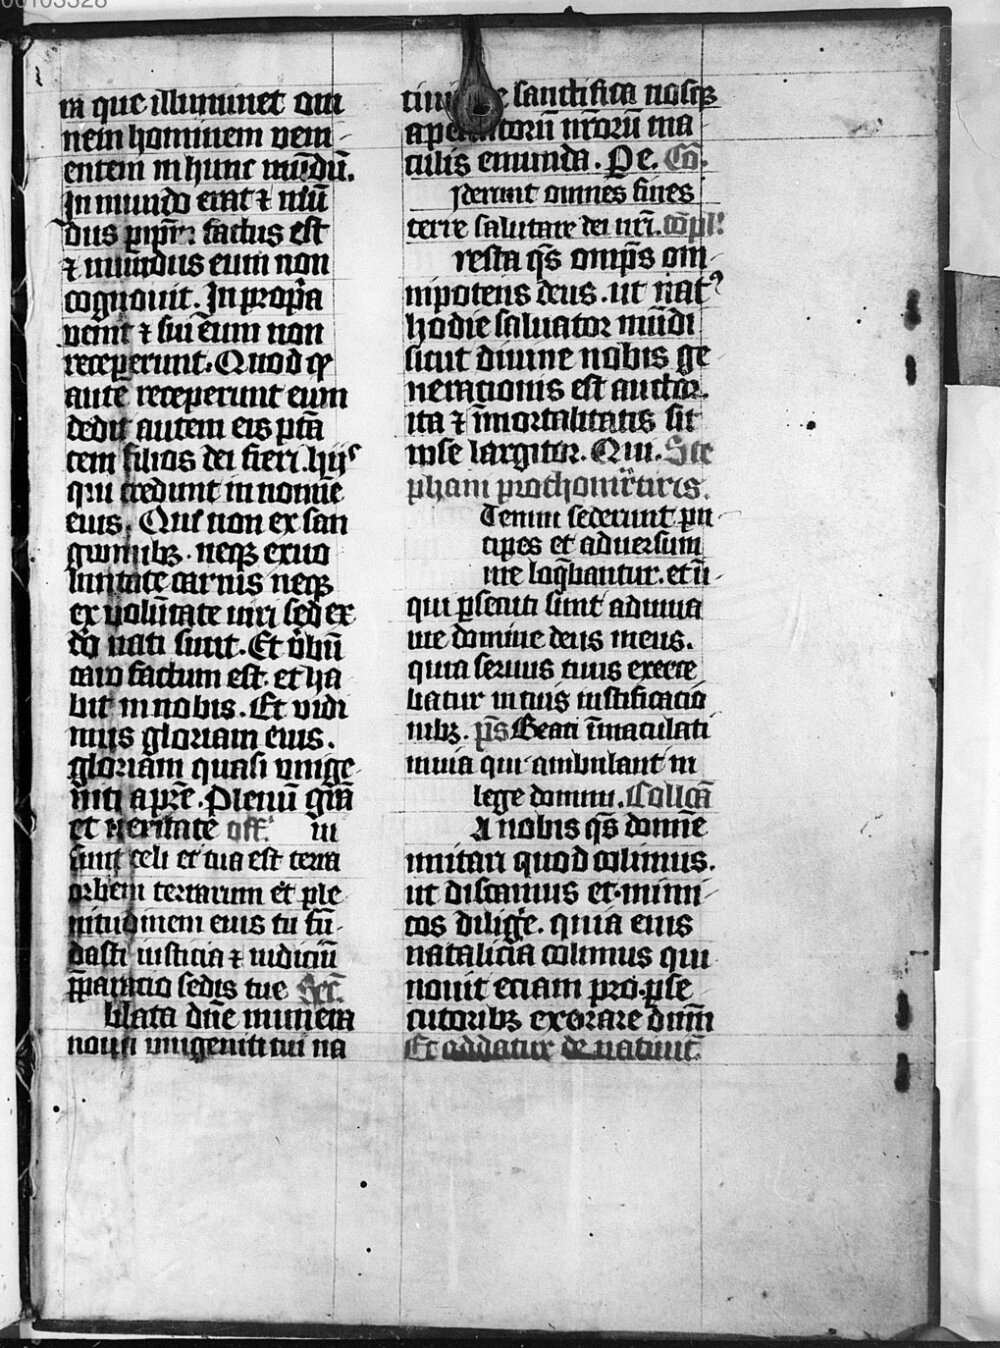 00103328
ra que illuminet om
nem hominem veni-
entem in hunc mūdū.
In mundo erat ⁊ mū
dus factus est
⁊ mundus eum non
cognouit. In propa
venit ⁊ sui eum non
receperunt. Quod
autē receperunt eum
dedit autem eis ptā
tem filios dei fieri. hijs
qui credunt in nomīe
eius. Qui non ex san
guinibꝫ. neqꝫ ex uo
luntate carnis neqꝫ
ex volūtate uiri sed ex
dō nati sunt. Et v̄bū
caro factum est. et ha
bit in nobis. Et vidi
mus gloriam eius.
gloriam quasi vnige
niti a pr̄e. Plenū grā
et veritate off. iu
sunt celi et tua est terra
orbem terrarum et ple
nitudinem eius tu fū-
dasti iusticia ⁊ iudiciū
p̄paracio sedis tue Sec̄.
blata dn̄e munera
noua vnigeniti tui na
sanctifica nosqꝫ
nr̄orū ma
culis emunda. Pe. Cō.
iderunt omnes fines
terre salutare dei nr̄i. cōpl.
resta qs̄ omps̄ om
nipotens deus. ut nat⁹
hodie saluator mūdi
sicut diuine nobis ge
nerationis est auctor.
ita ⁊ īmortalitatis sit
ipse largitor. Qui. Ste
phani prothomr̄tiris.
Tenim sederunt pn
cipes et aduersum
me loq̄bantur. et in-
qui p̱secuti sunt adiuua
me domine deus meus.
quia seruus tuus exerce
batur in tuis iustificacio
nibꝫ. ps̄ Beati īmaculati
in uia qui ambulant in
lege domini. Collcā
A nobis qs̄ domīe
imitari quod colimus.
ut discamus et inimi-
cos diligē. quia eius
natalicia colimus qui
nouit eciam pro p̱se
cutoribꝫ exorare dnm̄
Et addatur de natiuit̄.